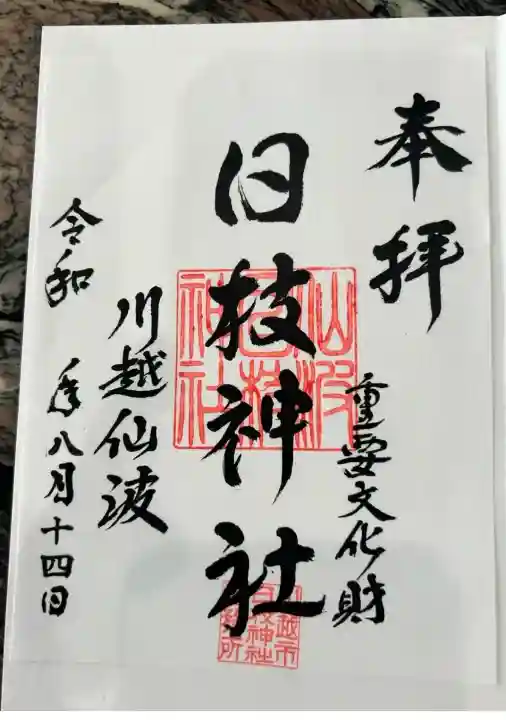 奉拝
重要文化財
日枝神社
仙波
日枝
神社
川越市
日枝神社
川越仙波
令和 年八月十四日